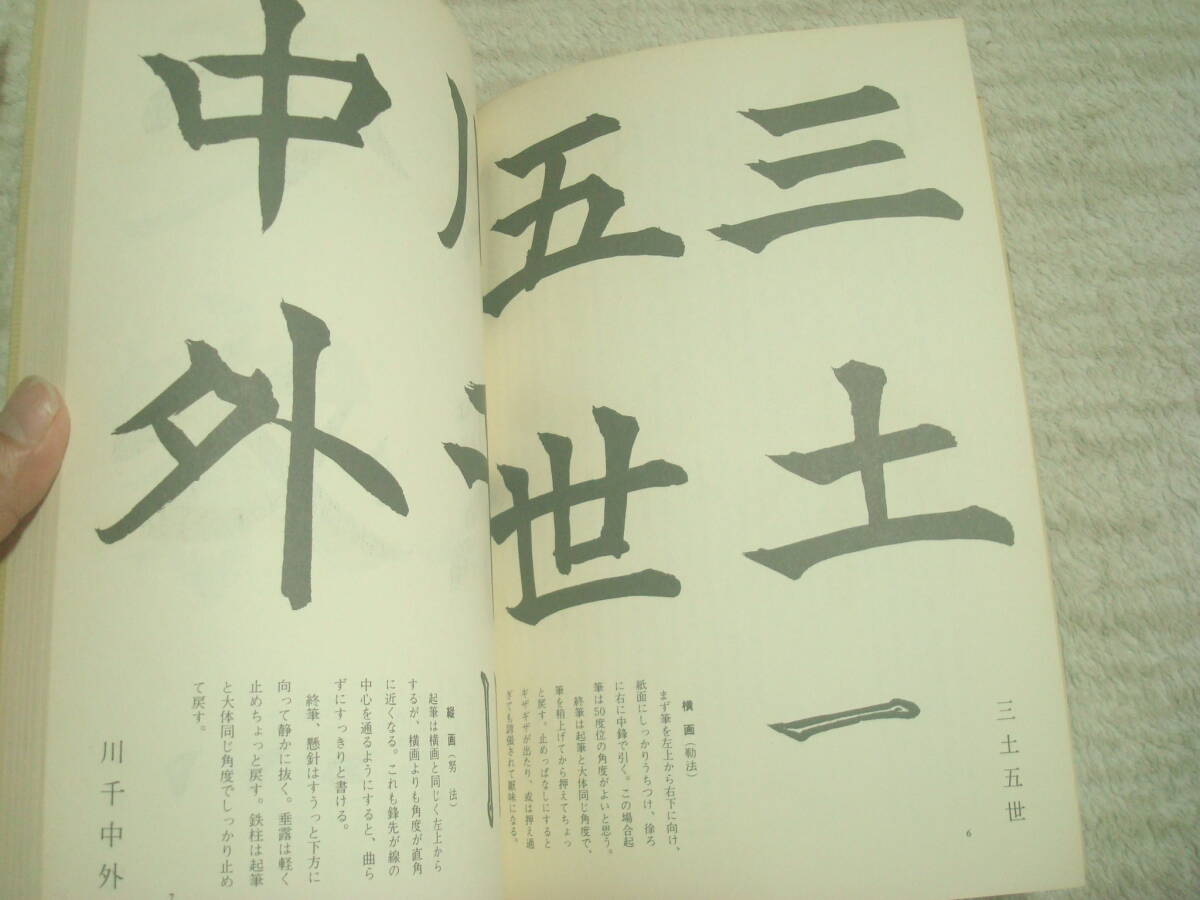 三
土
五
世
横画(勒法)
まず筆を左上から右下に向け、
紙面にしっかりうちつけ、徐ろ
に右に中鋒で引く。この場合起
筆は50度位の角度がよいと思う。
終筆は起筆と大体同じ角度で、
筆を稍上げてから押えてちょっ
と戻す。止めっぱなしにすると
ギザギザが出たり、或は押え過
ぎても誇張されて厭味になる。
三土五世
6
中
外
縦画(努法)
起筆は横画と同じく左上から
するが、横画よりも角度が直角
に近くなる。これも鋒先が線の
中心を通るようにすると、曲ら
ずにすっきりと書ける。
終筆、懸針はすうっと下方に
向って静かに抜く。垂露は軽く
止めちょっと戻す。鉄柱は起筆
と大体同じ角度でしっかり止め
て戻す。
川千中外
7